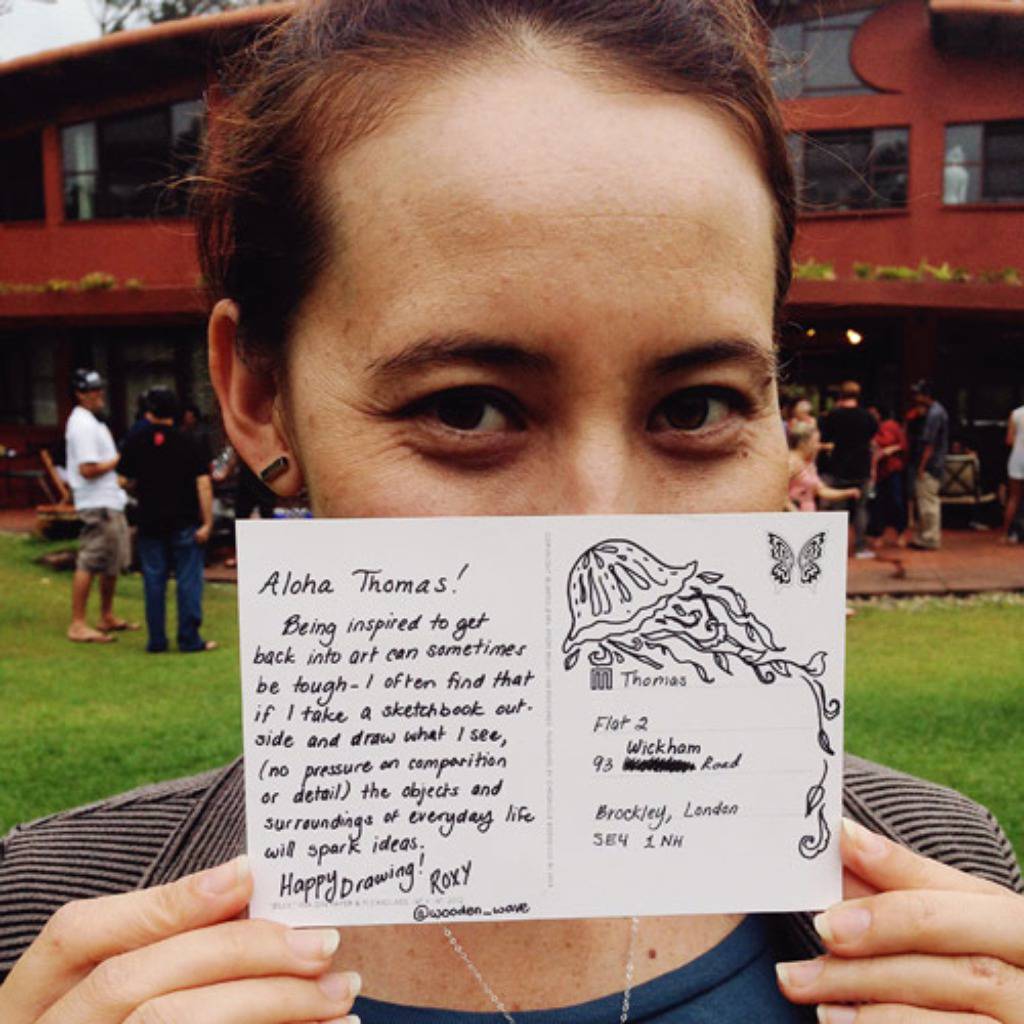 Aloha Thomas!
Being inspired to get
back into art can sometimes
be tough - I often find that
if I take a sketchbook out-
side and draw what I see,
(no pressure on composition
or detail) the objects and
surroundings of everyday life
will spark ideas.
Happy Drawing! ROXY
@wooden_wave
Thomas
Flat 2
Wickham
93 Road
Brockley, London
SE4 1NH